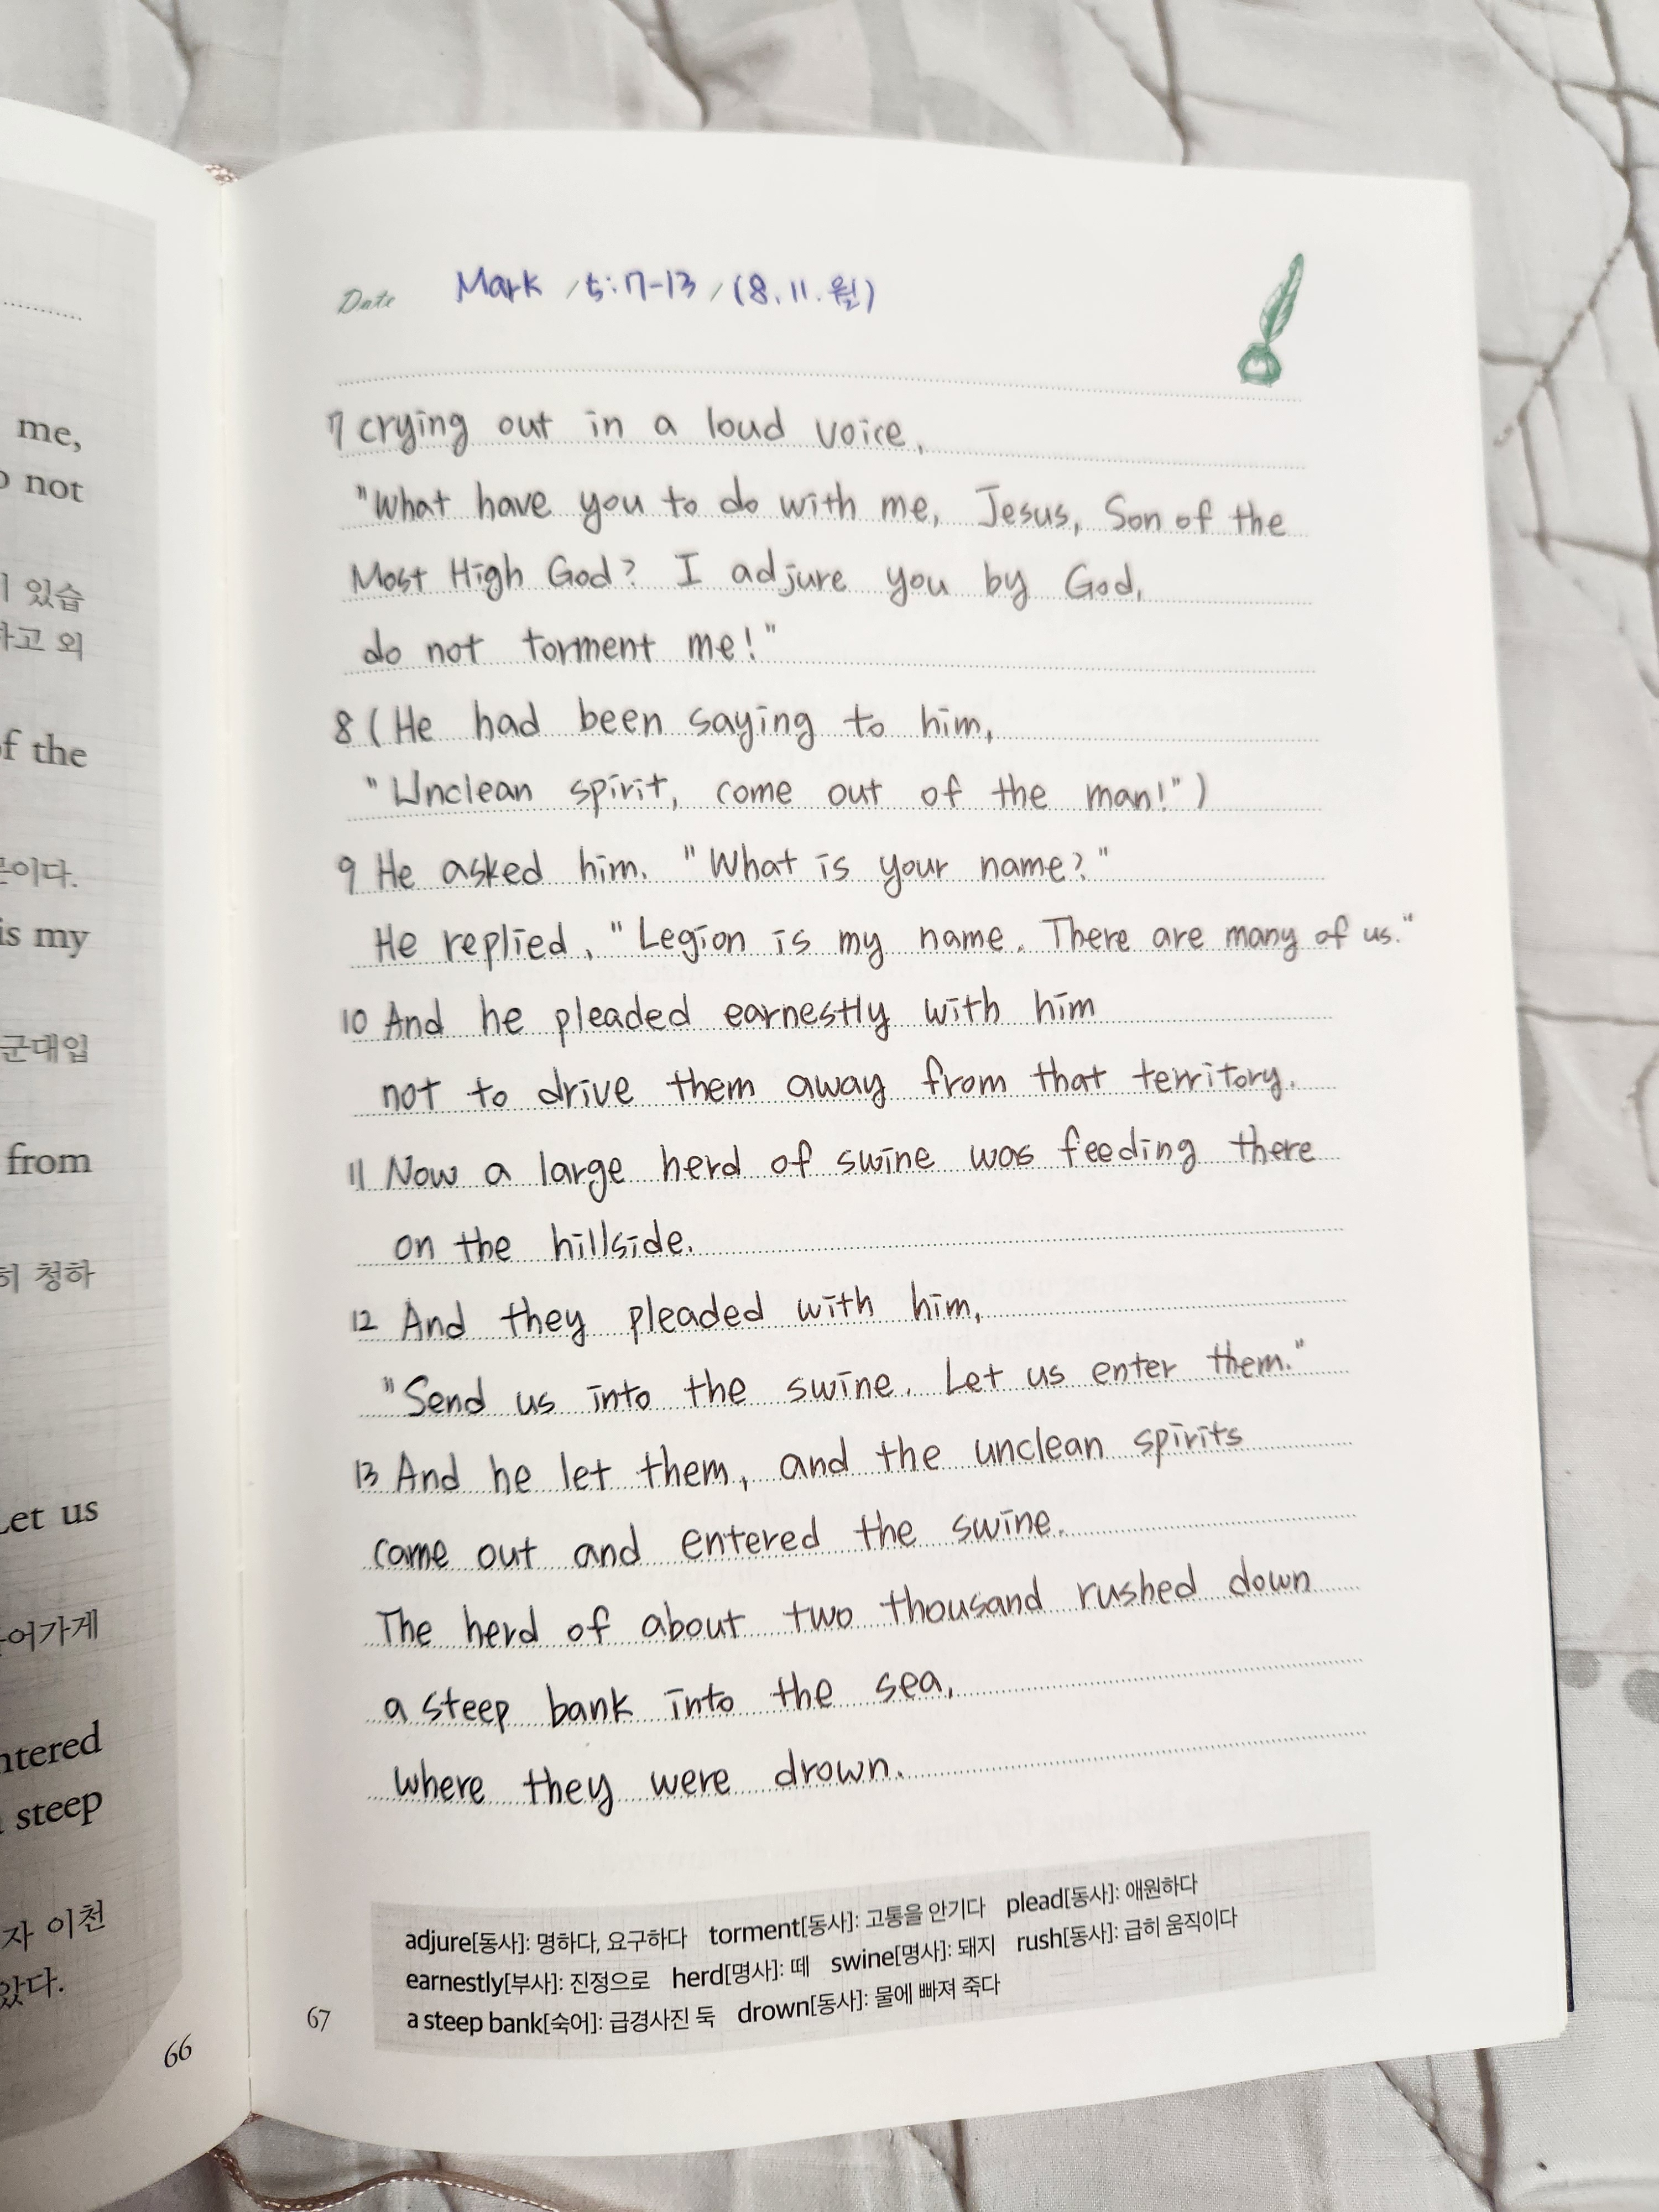 me,
not
있습
하고 외
of the
is my
군대입
from
히 청하
Let us
들어가게
entered
steep
자 이천
았다.
66
Date Mark / 5:7-13 / (8.11.월)
7 crying out in a loud voice,
"What have you to do with me, Jesus, Son of the
Most High God? I adjure you by God,
do not torment me!"
8 (He had been saying to him,
"Unclean spirit, come out of the man!")
9 He asked him. "What is your name?"
He replied, "Legion is my name. There are many of us."
10 And he pleaded earnestly with him
not to drive them away from that territory.
11 Now a large herd of swine was feeding there
on the hillside.
12 And they pleaded with him,
"Send us into the swine. Let us enter them."
13 And he let them, and the unclean spirits
came out and entered the swine.
The herd of about two thousand rushed down
a steep bank into the sea,
where they were drown.
adjure[동사]: 명하다, 요구하다 torment[동사]: 고통을 안기다 plead[동사]: 애원하다
earnestly[부사]: 진정으로 herd[명사]: 떼 swine[명사]: 돼지 rush[동사]: 급히 움직이다
a steep bank[숙어]: 급경사진 둑 drown[동사]: 물에 빠져 죽다
67